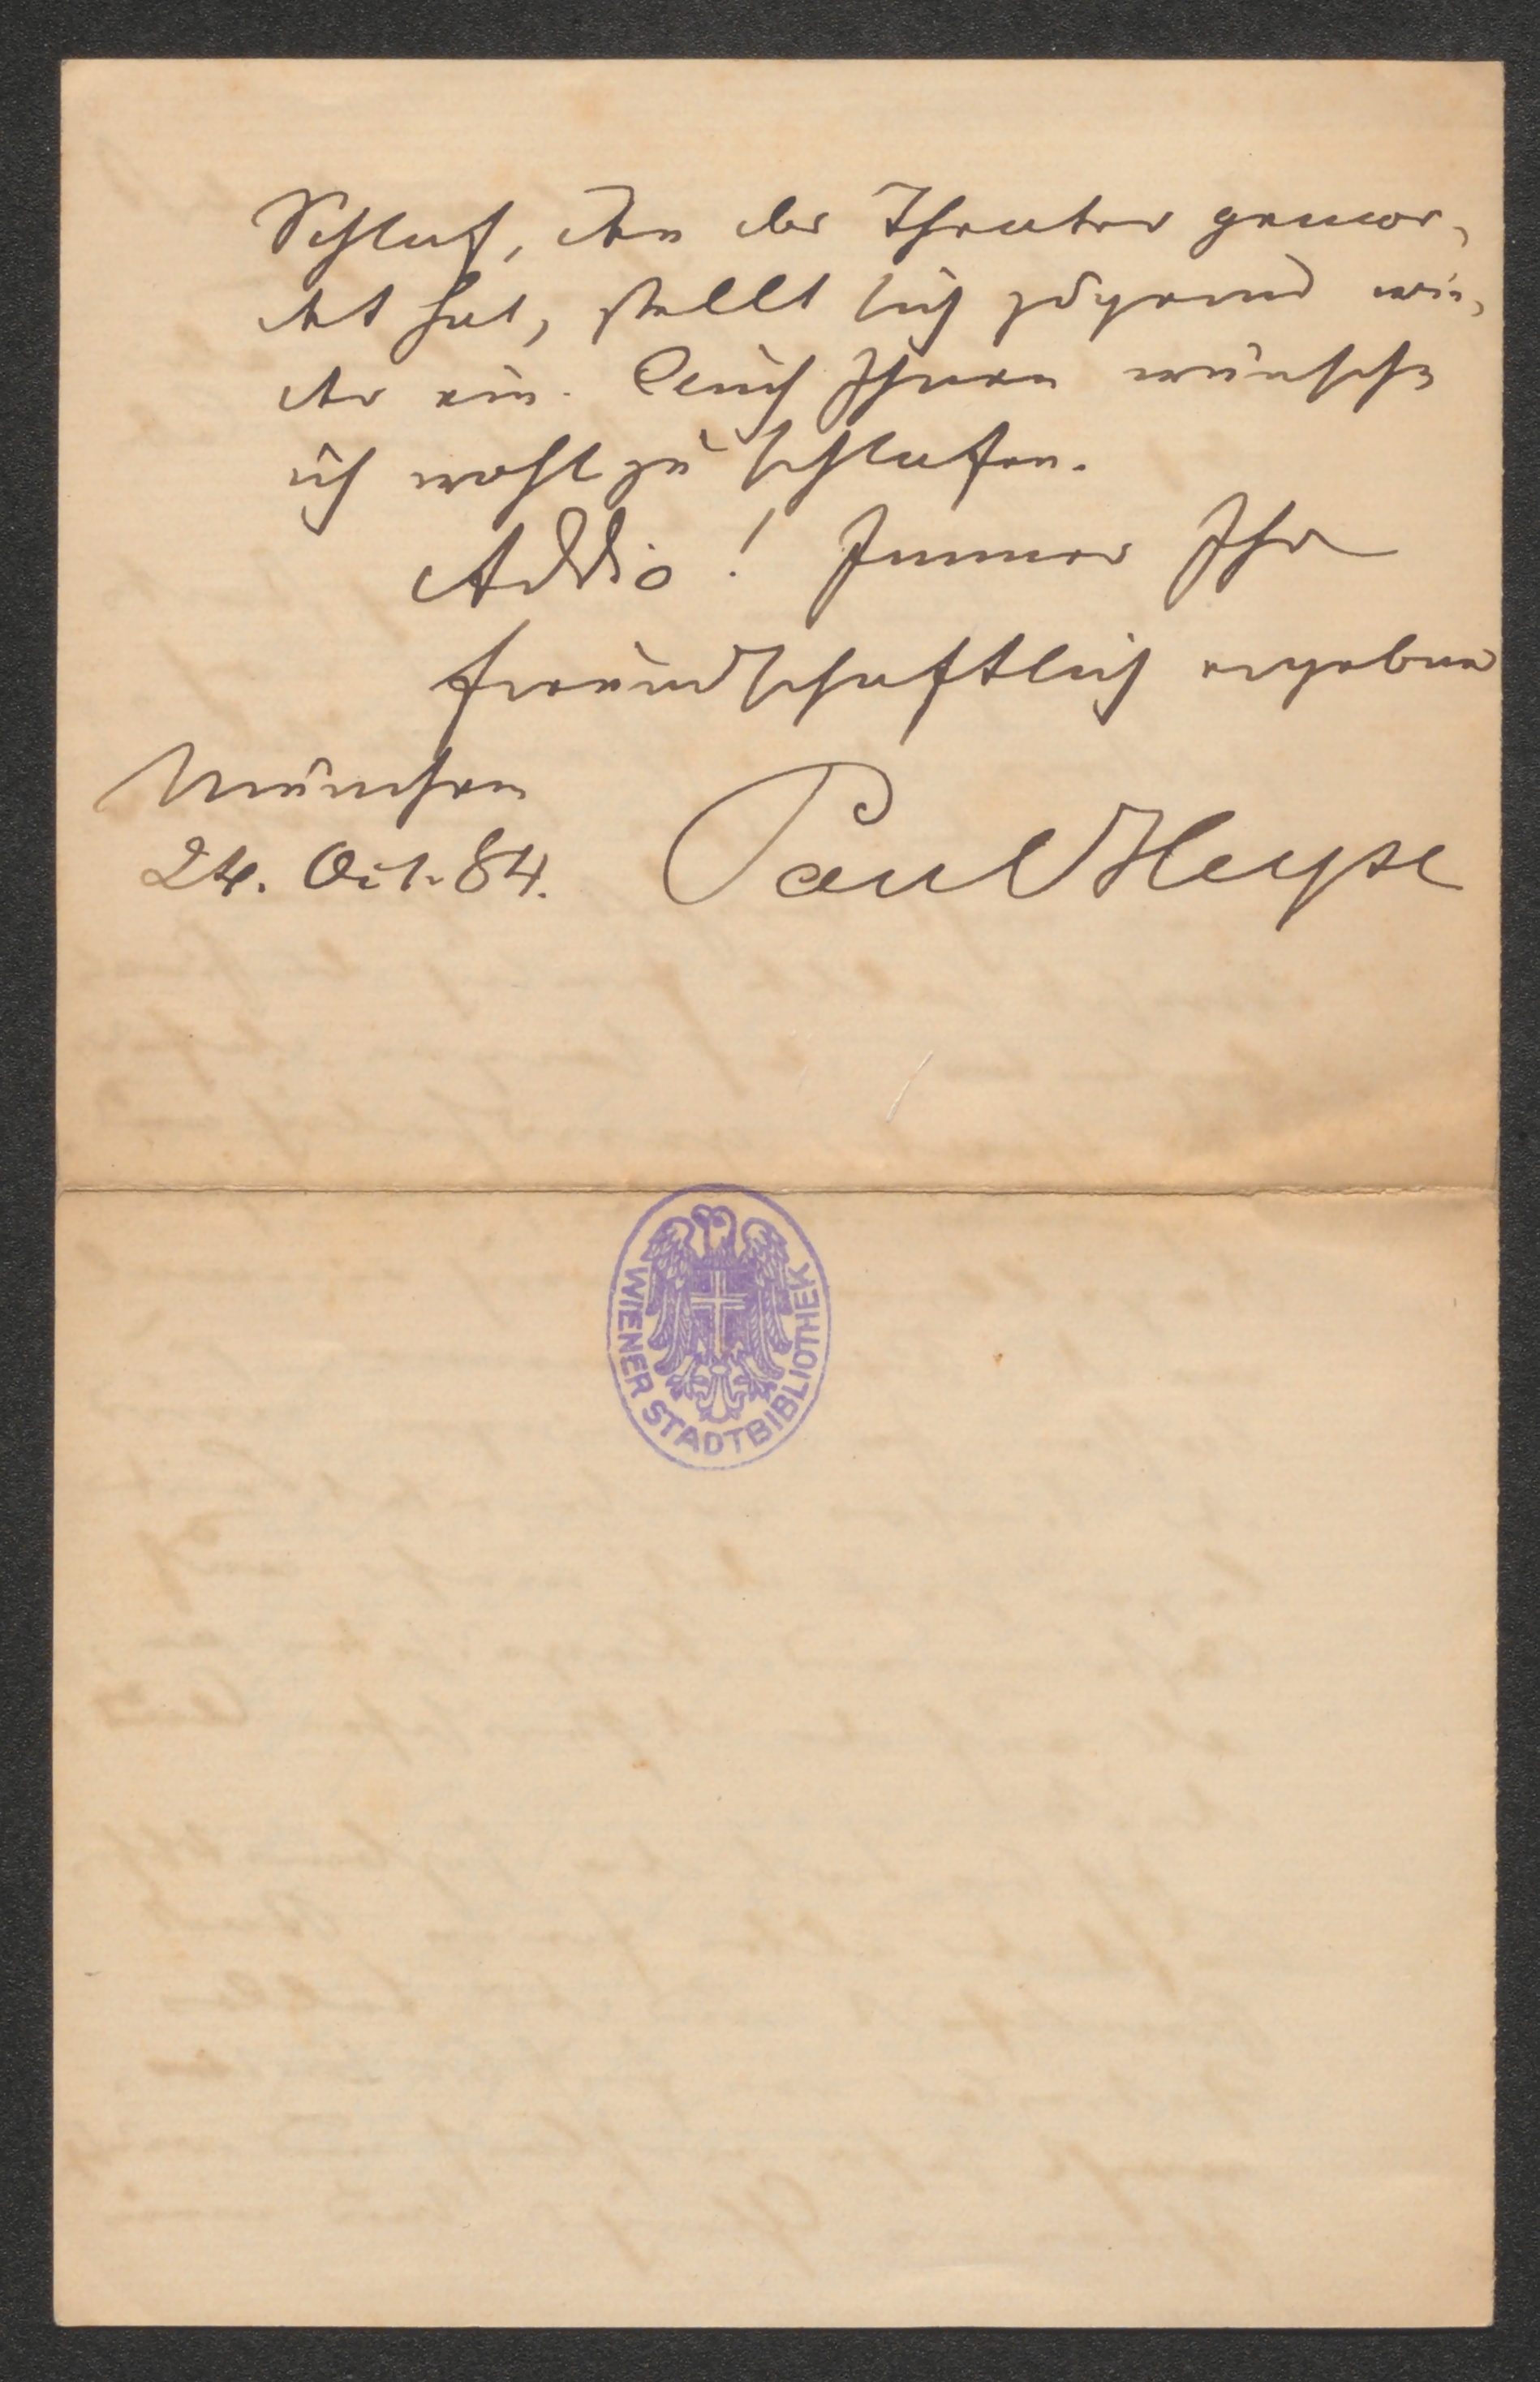 Schlaf, den das Theater gemor-
det hat, stellt sich zögernd wie-
der ein. Auch Ihnen wünsche
ich wohl zu schlafen.
Addio! Immer Ihr
freundschaftlich ergebner
München
24. Oct. 84.
Paul Heyse
WIENER STADTBIBLIOTHEK